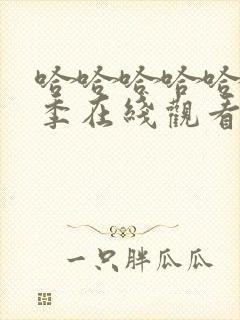 哈哈哈哈哈
季在綫觀看
一只胖瓜瓜